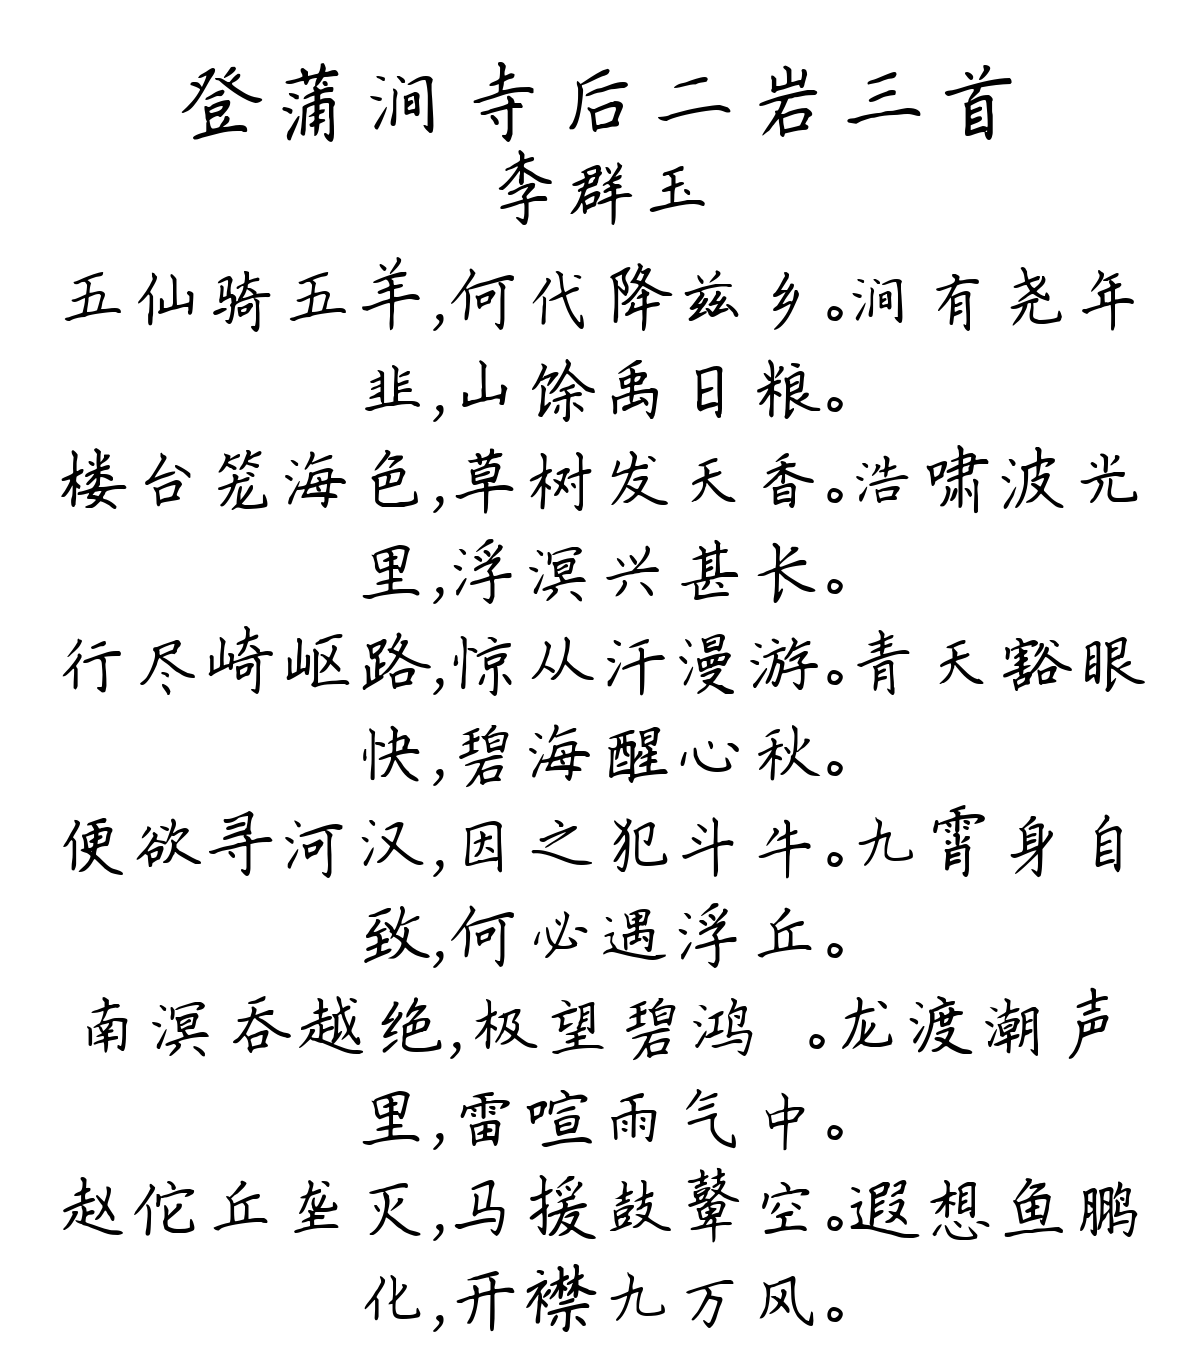 登蒲涧寺后二岩三首
李群玉
五仙骑五羊,何代降兹乡。涧有尧年
韭,山馀禹日粮。
楼台笼海色,草树发天香。浩啸波光
里,浮溟兴甚长。
行尽崎岖路,惊从汗漫游。青天豁眼
快,碧海醒心秋。
便欲寻河汉,因之犯斗牛。九霄身自
致,何必遇浮丘。
南溟吞越绝,极望碧鸿 。龙渡潮声
里,雷喧雨气中。
赵佗丘垄灭,马援鼓鼙空。遐想鱼鹏
化,开襟九万风。